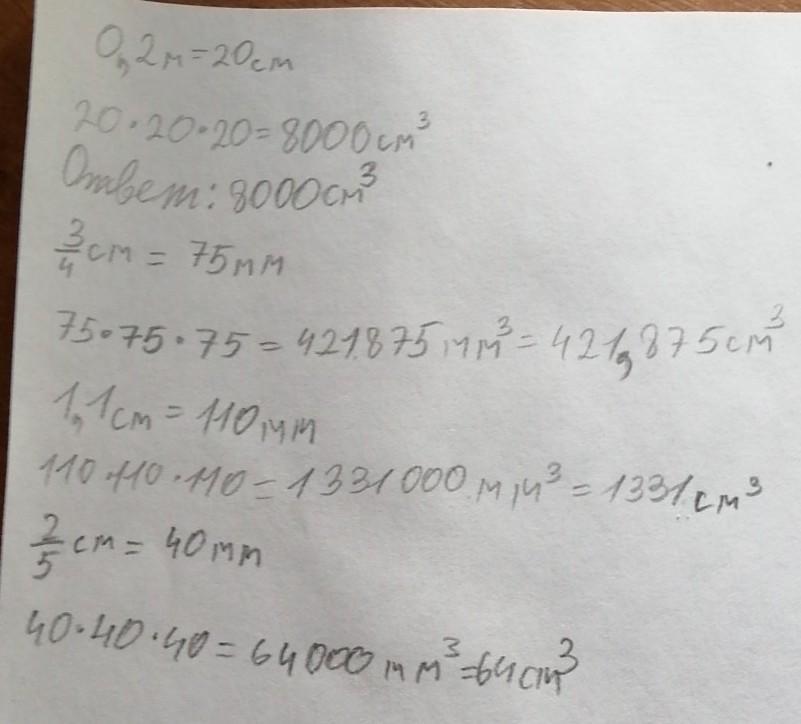 0,2м=20см
20·20·20=8000см³
Ответ: 8000см³
3/4 см = 75мм
75·75·75=421875мм³=421,875см³
1,1см=110мм
110·110·110=1331000мм³=1331см³
2/5 см = 40мм
40·40·40=64000мм³=64см³